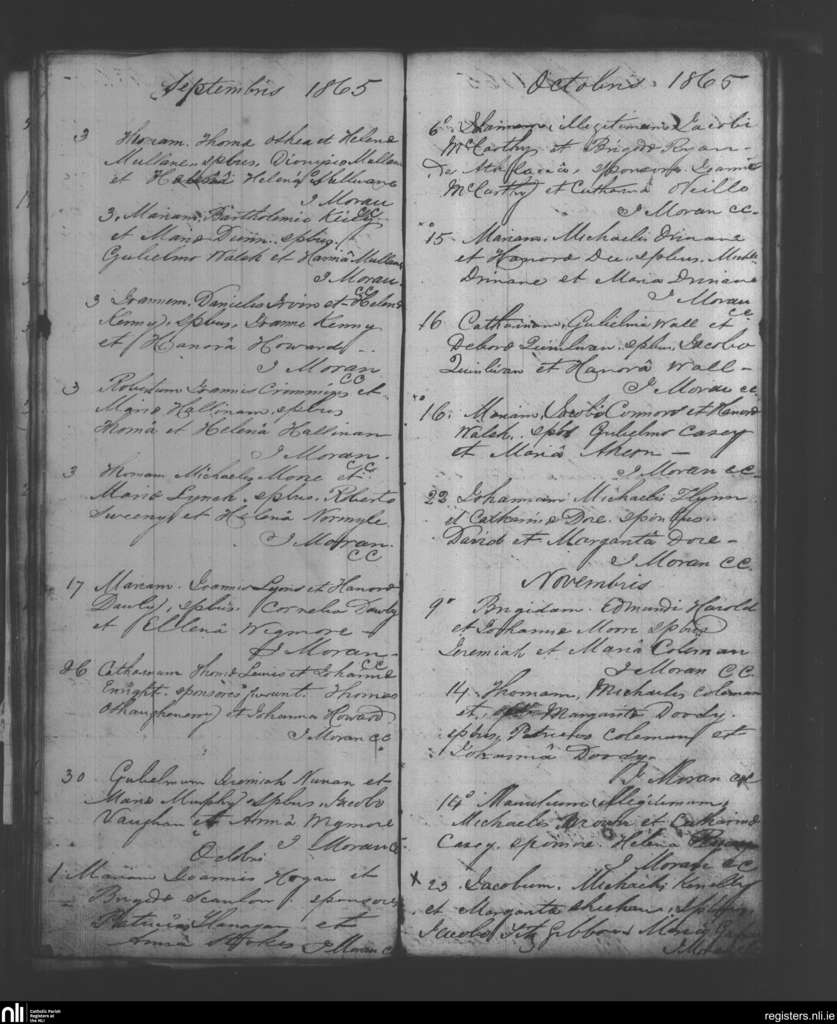 Septembris 1865
3 Thomam. Thoma Oshea et Helena
Mullane. spbus. Dionysio Mullane
et Helena Sullivane
J Moran
CC
3. Mariam. Bartholemio Kielly
et Maria Dunn. spbus.
Gulielmo Walsh et Hanna Mullane
J Moran.
CC
3 Joannem. Danielis Irvin et Helena
Kenny. spbus. Joanne Kenny
et Hanorâ Howard
J Moran
CC
3 Robertum Joannis Crimmins et
Maria Hallinan. spbus
Thomâ et Helenâ Hallinan
J Moran.
CC
3 Thomam Michaelis Mone et
Maria Lynch. spbus. Roberto
Sweeny et Helenâ Normyle
J Moran.
CC
17 Mariam. Joannis Lyons et Hanora
Dawly. spbus. Cornelio Dawly
et Ellenâ Wigmore
J Moran
CC
26 Catharinam Thoma Lewis et Johanna
Enright. sponsores fuerunt. Thomas
Oshaughenessy et Johanna Howard
J Moran CC
30 Gulielmum Jeremiah Nunan et
Maria Murphy. Spbus. Jacobo
Vaughan et Annâ Wigmore
J Moran CC
Octobri
1 Mariam Joannis Hogan et
Brigida Scanlon. sponsores
Patricius Flanagan et
Anna Stokes J Moran C
Octobris 1865
6º illegitimam Jacobi
McCarthy et Brigida Ryan
sponsoribus. Joannes
McCarthy et Catharinâ Oneillo
J Moran CC
15 Mariam. Michaelis Drinane
et Hanora Dee. spbus. Mich
Drinane et Maria Drinane
J Moran
CC
16 Catharinam. Gulielmi Wall et
Debora Quinlivan. spbus. Jacobo
Quinlivan et Hanorâ Wall
J Moran CC
16. Mariam. Jacobi Connors et Hanora
Walsh. spbs Gulielmo Casey
et Mariâ Ahern
J Moran CC
22 Johannam Michaelis Flynn
et Catharina Dore. sponbus.
David et Margarita Dore
J Moran CC
Novembris
9º Brigidam. Edmundi Harold
et Johanna Moore spbus
Jeremiah et Mariâ Coleman
J Moran CC.
14. Thomam, Michaelis Coleman
et Margarita Doody.
spbus, Patricius Coleman et
Johannâ Doody.
J Moran CC
14º illegitimum
Michaelis Brown et Catharina
Casey. sponsore. Helena
J Moran CC
X 23. Jacobum. Michaelis Kinelly
et Margarita Sheehan. Spbus
Jacobo Fitz Gibbon Maria
J Moran CC
nli
Catholic Parish
Registers at
the NLI
registers.nli.ie